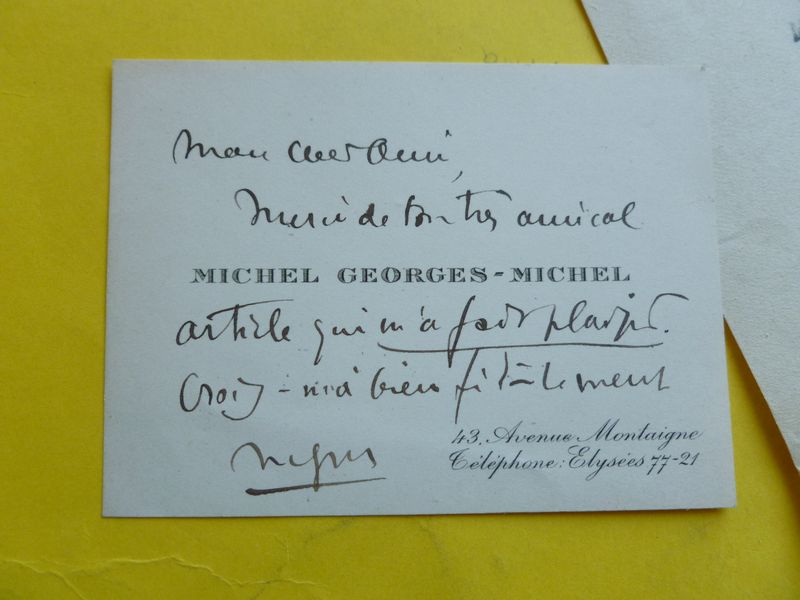 Mon cher Ami,
Merci de ton très amical
MICHEL GEORGES-MICHEL
article qui m'a fait plaisir.
Crois-m'à bien fidèlement
43, Avenue Montaigne
Téléphone: Elysées 77-21